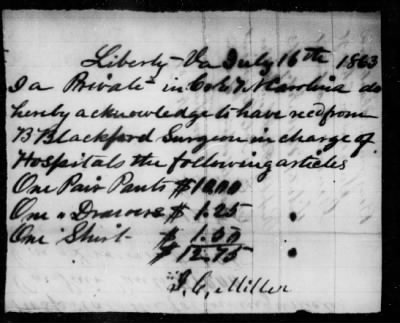 Liberty Va July 16th 1863
I a Private in Co E 7 N Carolina do
hereby acknowledge to have recd from
B Blackford Surgeon in charge of
Hospitals the following articles
One Pair Pants $10.00
One " Drawers $ 1.25
One Shirt $ 1.50
$ 12.75
J. C. Miller